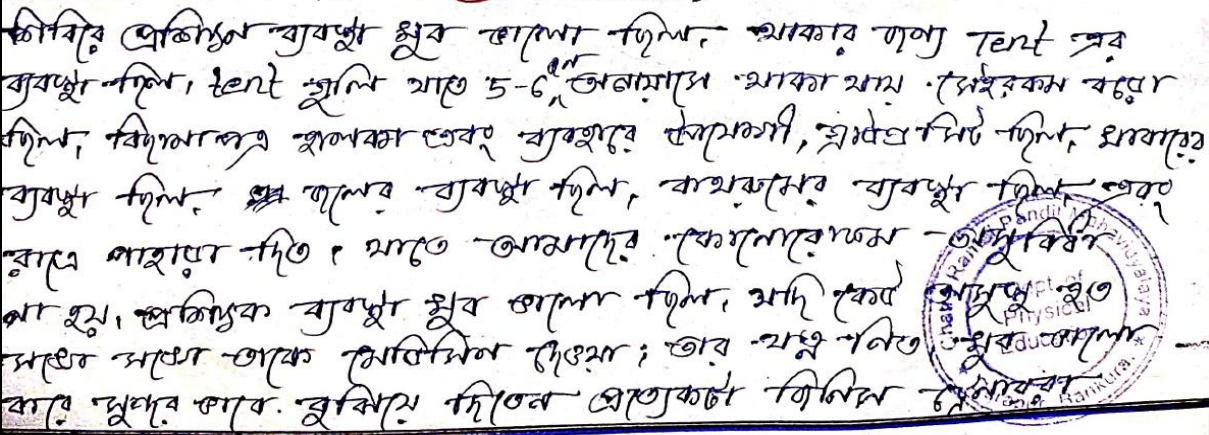 শিবিরে প্রশিক্ষণ ব্যবস্থা খুব ভালো ছিল, থাকার জন্য Tent এর
ব্যবস্থা ছিল, tent গুলি যাতে 5-6 জন অনায়াসে থাকা যায় সেইরকম বড়ো
ছিল, বিছানাপত্র হালকা এবং ব্যবহারে উপযোগী, সিট ছিল, খাবারের
ব্যবস্থা ছিল, জলের ব্যবস্থা ছিল, বাথরুমের ব্যবস্থা ছিল, এবং
রাত্রে পাহারা দিত, যাতে আমাদের কোনোরোকম অসুবিধা
না হয়, প্রশিক্ষক ব্যবস্থা খুব ভালো ছিল, যদি কেউ অসুস্থ হত
সঙ্গে সঙ্গে তাকে মেডিসিন দেওয়া; তার যত্ন নিত, খুব ভালো
করে সুন্দর ভাবে বুঝিয়ে দিতেন প্রত্যেকটা জিনিস
Pandit Mahavidyalaya
Dept. of
Physical
Education
Bankura